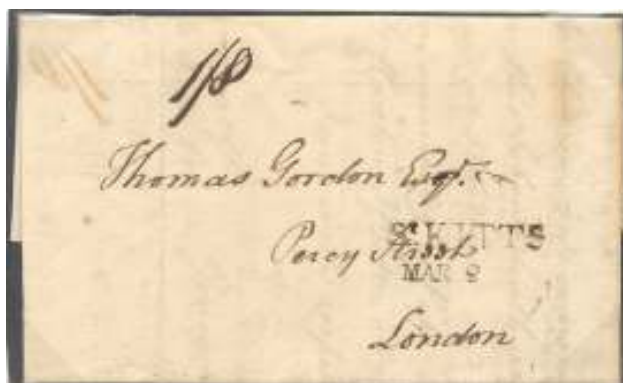 1/8
Thomas Gordon Esqr.
Percy Street
St KITTS
MAR 9
London